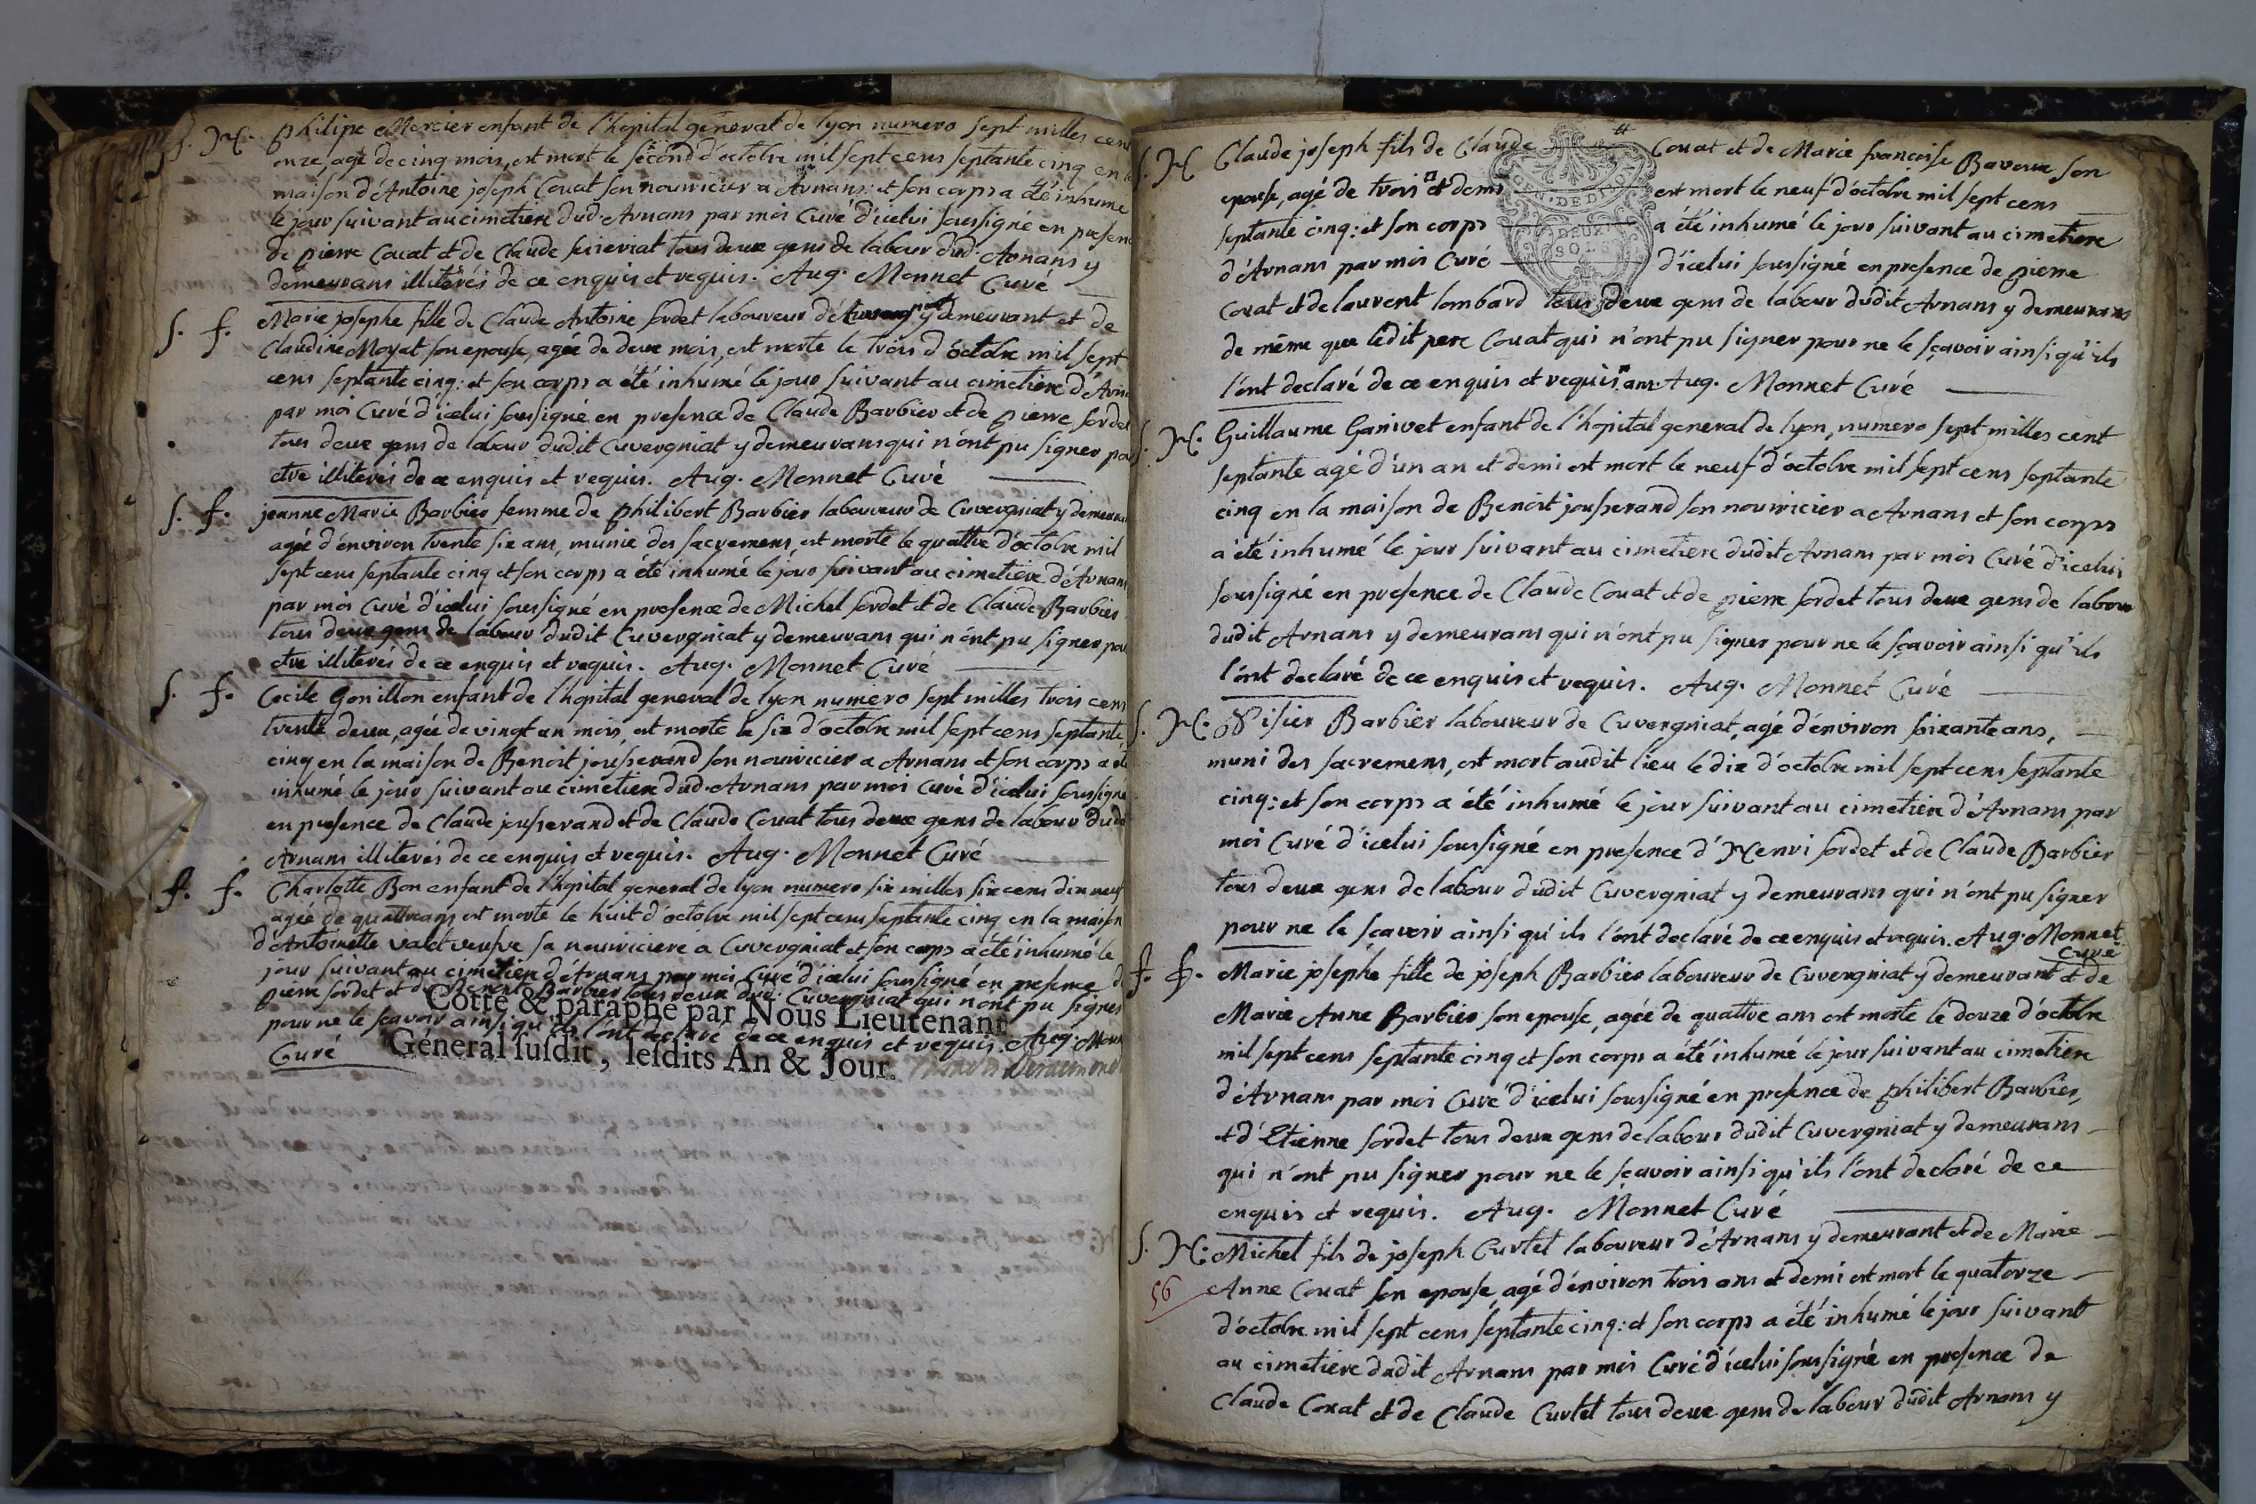 S. H. philipe Mercier enfant de l'hopital general de lyon numero sept milles cent
onze, agé de cinq mois, est mort le second d'octobre mil sept cens septante cinq en la
maison d'Antoine joseph Couat son nourricier a Arnans: et son corps a été inhumé
le jour suivant au cimetiere dud. Arnans par moi Curé d'icelui soussigné en presence
de pierre Couat et de Claude tous deux gens de labour dud. Arnans y
demeurans illiterés de ce enquis et requis. Aug. Monnet Curé
S. f. Marie josephe fille de Claude Antoine sordet laboureur de y demeurant et de
Claudine Moyat son epouse, agée de deux mois, est morte le trois d'octobre mil sept
cens septante cinq: et son corps a été inhumé le jour suivant au cimetiere d'Arnans
par moi Curé d'icelui soussigné en presence de Claude Barbier et de pierre sordet
tous deux gens de labour dudit Cuvergniat y demeurans qui n'ont pu signer pour
etre illiterés de ce enquis et requis. Aug. Monnet Curé
S. f. jeanne Marie Barbier femme de philibert Barbier laboureur de Cuvergniat y demeurant
agée d'environ trente six ans, munie des sacremens, est morte le quattre d'octobre mil
sept cens septante cinq et son corps a été inhumé le jour suivant au cimetiere d'Arnans
par moi Curé d'icelui soussigné en presence de Michel sordet et de Claude Barbier
tous deux gens de labour dudit Cuvergniat y demeurans qui n'ont pu signer pour
etre illiterés de ce enquis et requis. Aug. Monnet Curé
S. f. Cecile Gonillon enfant de l'hopital general de lyon numero sept milles trois cens
trente deux, agée de vingt un mois, est morte le six d'octobre mil sept cens septante
cinq en la maison de Benoit jousserand son nourricier a Arnans et son corps a été
inhumé le jour suivant au cimetiere dud. Arnans par moi Curé d'icelui soussigné
en presence de Claude jousserand et de Claude Couat tous deux gens de labour dudit
Arnans illiterés de ce enquis et requis. Aug. Monnet Curé
f. f. Charlotte Bon enfant de l'hopital general de lyon numero six milles six cens dix neuf
agée de quattre ans est morte le huit d'octobre mil sept cens septante cinq en la maison
d'Antoinette valet veufve sa nourriciere a Cuvergniat et son corps a été inhumé le
jour suivant au cimetiere d'Arnans par moi Curé d'icelui soussigné en presence de
pierre sordet et de Benoit Barbier tous deux dud. Cuvergniat qui n'ont pu signer
pour ne le sçavoir ainsi qu'ils l'ont declaré de ce enquis et requis. Aug. Monnet
Curé
Cotté & paraphé par Nous Lieutenant
Général susdit, lesdits An & Jour.
S. H. Claude joseph fils de Claude Couat et de Marie francoise Bavoux son
epouse, agé de trois et demi est mort le neuf d'octobre mil sept cens
septante cinq: et son corps a été inhumé le jour suivant au cimetiere
d'Arnans par moi Curé d'icelui soussigné en presence de pierre
Couat et de laurent lombard tous deux gens de labour dudit Arnans y demeurans
de même que ledit pere Couat qui n'ont pu signer pour ne le sçavoir ainsi qu'ils
l'ont declaré de ce enquis et requis. ans Aug. Monnet Curé
GEN. DE DIJON
DEUX
SOLS
S. H. Guillaume Ganivet enfant de l'hopital general de lyon, numero sept milles cent
septante agé d'un an et demi est mort le neuf d'octobre mil sept cens septante
cinq en la maison de Benoit jousserand son nourricier a Arnans et son corps
a été inhumé le jour suivant au cimetiere dudit Arnans par moi Curé d'icelui
soussigné en presence de Claude Couat et de pierre sordet tous deux gens de labour
dudit Arnans y demeurans qui n'ont pu signer pour ne le sçavoir ainsi qu'ils
l'ont declaré de ce enquis et requis. Aug. Monnet Curé
S. H. Disier Barbier laboureur de Cuvergniat, agé d'environ soixante ans,
muni des sacremens, est mort audit lieu le dix d'octobre mil sept cens septante
cinq: et son corps a été inhumé le jour suivant au cimetiere d'Arnans par
moi Curé d'icelui soussigné en presence d'Henri sordet et de Claude Barbier
tous deux gens de labour dudit Cuvergniat y demeurans qui n'ont pu signer
pour ne le sçavoir ainsi qu'ils l'ont declaré de ce enquis et requis. Aug. Monnet
Curé
f. f. Marie josephe fille de joseph Barbier laboureur de Cuvergniat y demeurant et de
Marie Anne Barbier son epouse, agée de quattre ans est morte le douze d'octobre
mil sept cens septante cinq et son corps a été inhumé le jour suivant au cimetiere
d'Arnans par moi Curé d'icelui soussigné en presence de philibert Barbier,
et d'Etienne sordet tous deux gens de labour dudit Cuvergniat y demeurans
qui n'ont pu signer pour ne le sçavoir ainsi qu'ils l'ont declaré de ce
enquis et requis. Aug. Monnet Curé
S. H. Michel fils de joseph Curtet laboureur d'Arnans y demeurant et de Marie
56 Anne Couat son epouse, agé d'environ trois ans et demi est mort le quatorze
d'octobre mil sept cens septante cinq: et son corps a été inhumé le jour suivant
au cimetiere dudit Arnans par moi Curé d'icelui soussigné en presence de
Claude Couat et de Claude Curtet tous deux gens de labour dudit Arnans y